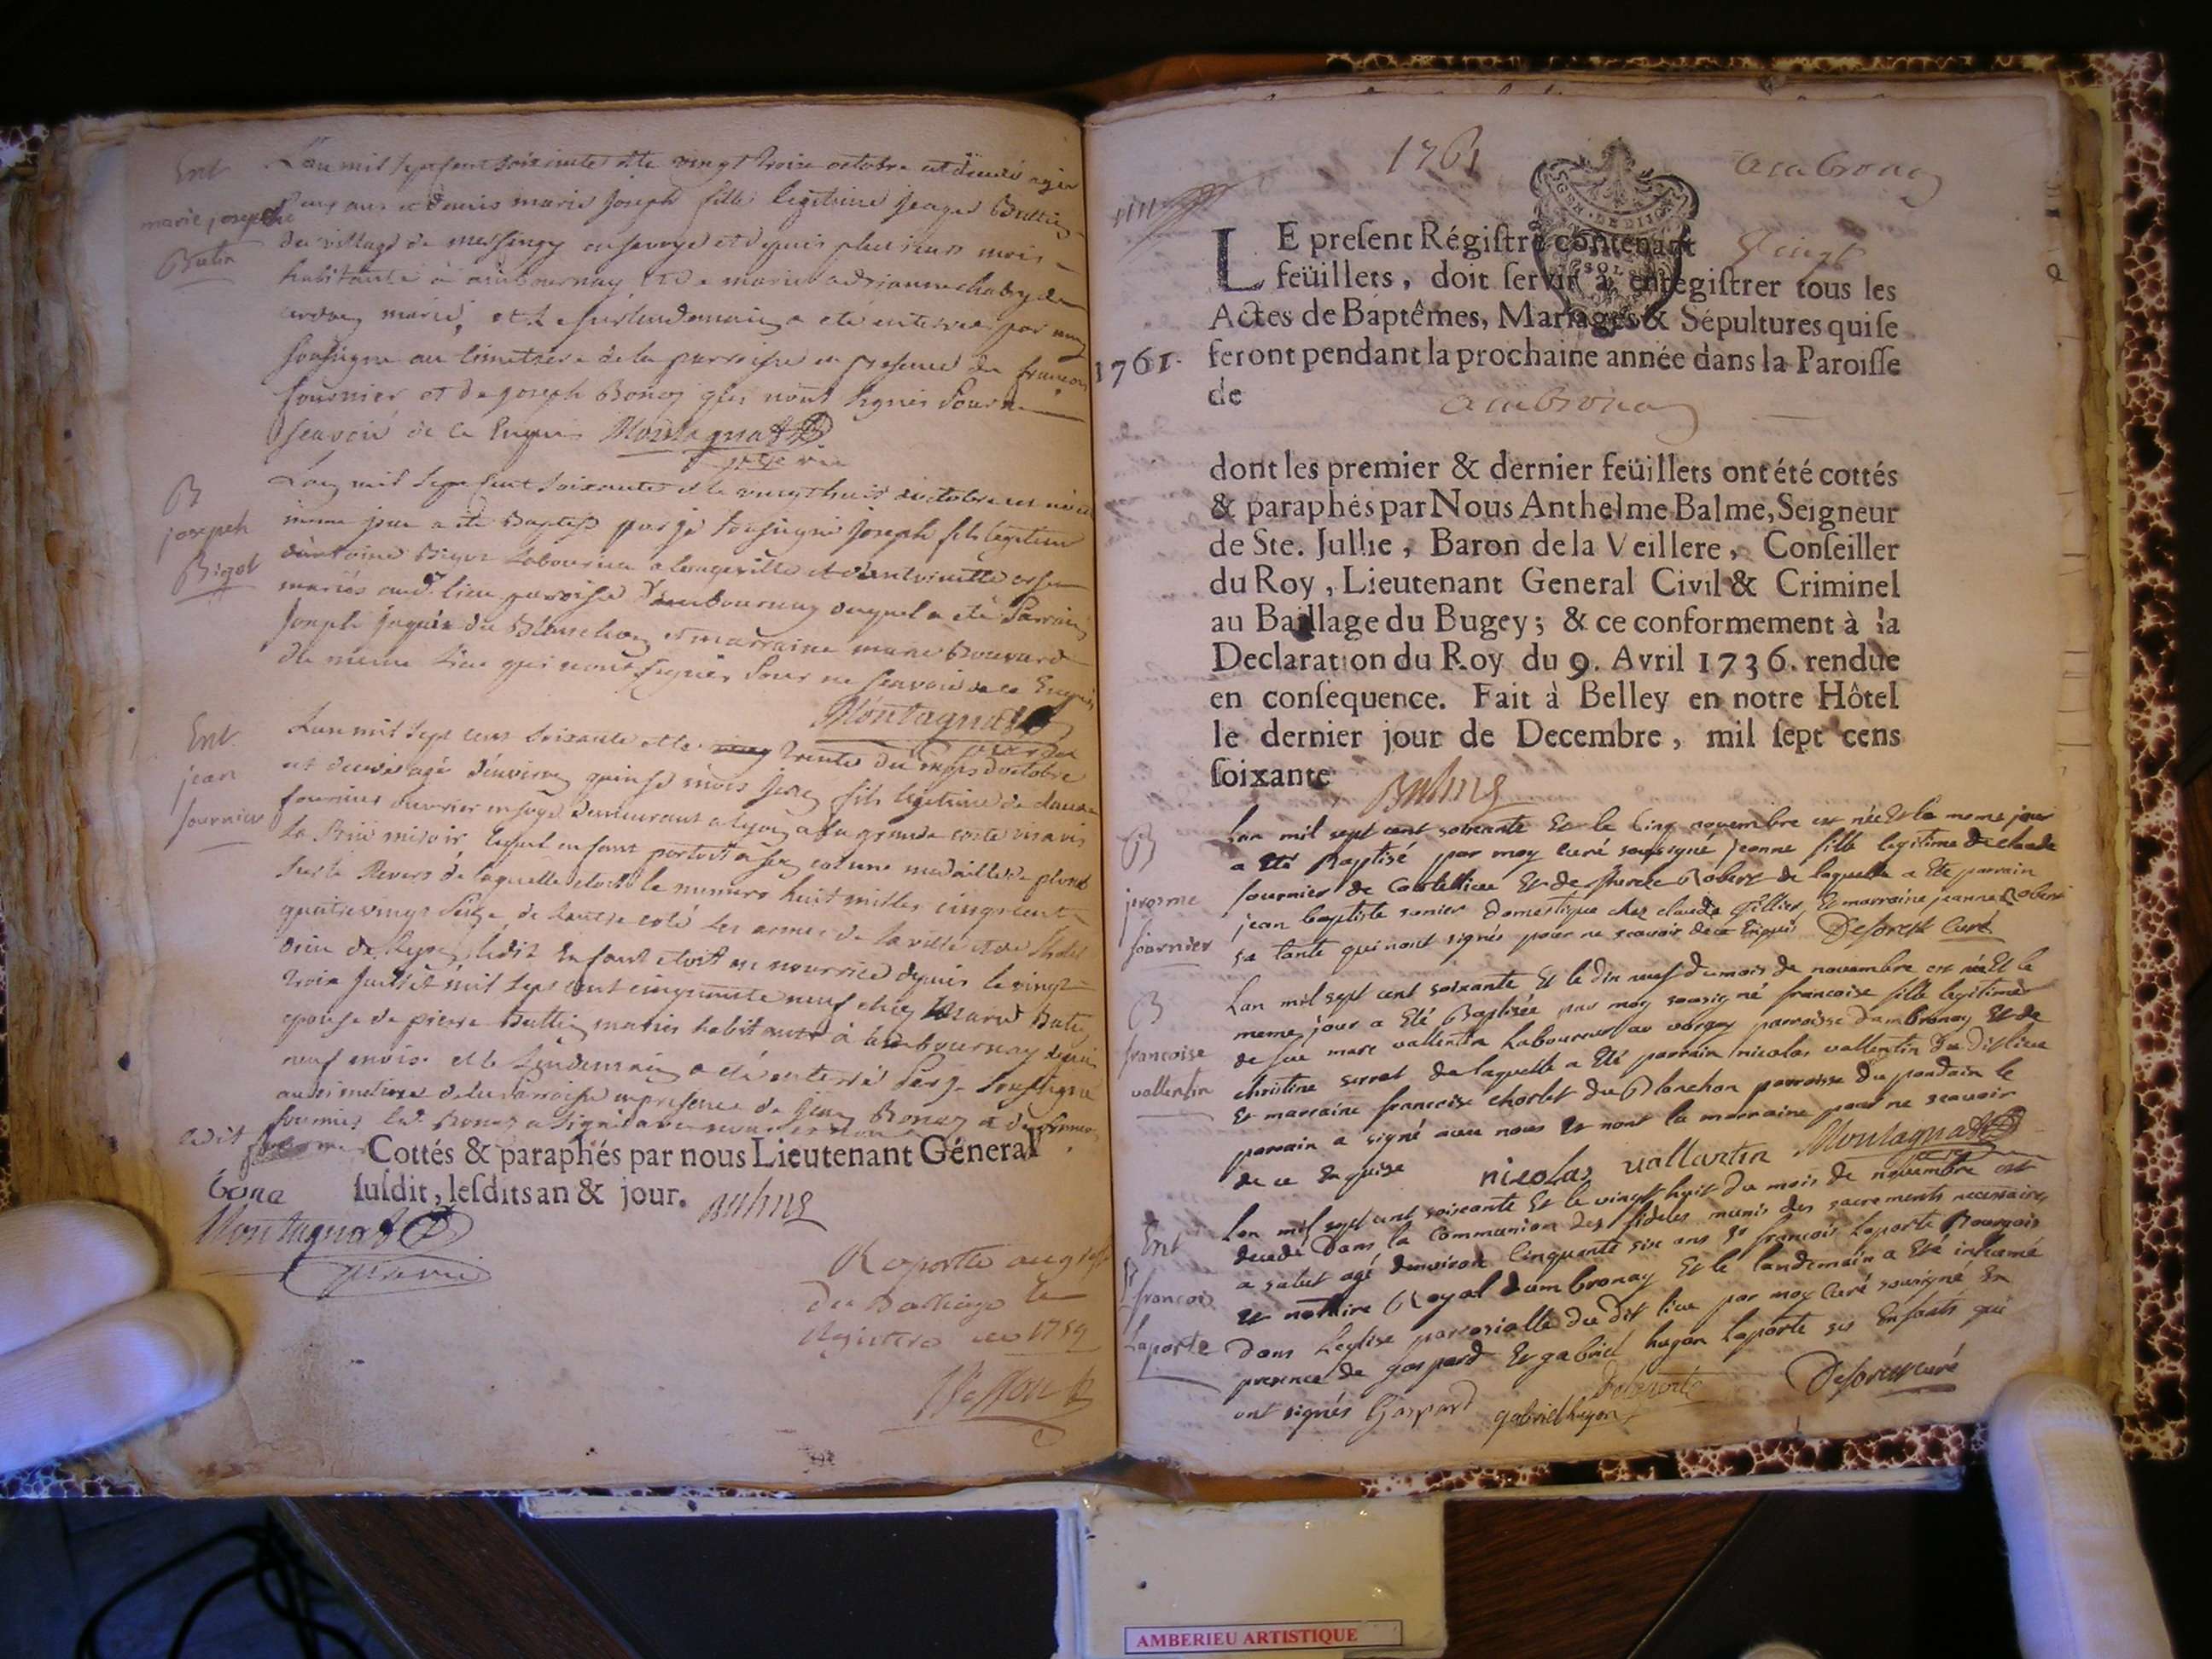 Ent
marie josephe
Butin
L'an mil sept cent soixante et le vingt trois octobre est decedé agée
deux ans et demis marie Joseph fille legitime Butti
du village de messingy en savoye et depuis plusieurs mois
habitante à ambournay et de marie
mariés, et le surlendemain a été enterrée par moy
soussigné au cimetiere de la parroisse en presence de francois
fournier et de joseph Bonoz qui n'ont signés pour ne
sçavoir de ce Enquis Montagnat
vic
B
joseph
Bigot
L'an mil sept cent soixante et le vingt huit octobre est né et le
meme jour a été Baptisé par je soussigné joseph fils legitime
d'antoine Bigot Laboureur a longeville et d'antoinette
mariés audt lieu parroisse d'ambournay duquel a été Parrain
joseph et marraine marie Bouvard
du meme lieu qui n'ont signés pour ne sçavoir de ce Enquis
Montagnat
Ent
jean
fournier
L'an mil sept cens soixante et le trente du mois d'octobre
est decedé agé d'environ quinse mois jean fils legitime de claude
fournier ouvrier en soye demeurant a lyon a la grande coste vis a vis
la Rüe miroir lequel enfant portoit a son col une medaille de plomb
sur le Revers de laquelle etoit le numero huit milles cinq cent
quatre vingt seize de l'autre coté les armes de la ville et de l'hotel
dieu de lyon, ledit Enfant etoit en nourrice depuis le vingt
trois Juillet mil sept cent cinquante neuf chez marie Buti
epouse de pierre Buttin mariés habitants à ambournay depuis
neuf mois et le Lendemain a été enterré par je soussigné
au cimetiere de la Parroisse en presence de jean Bonoz et de francois
fournier led. Bonoz a signé avec nous et non
Cottés & paraphés par nous Lieutenant Géneral
susdit, lesdits an & jour. Balme
bona
Montagnat
vic
Raporté au greffe
du Balliage le
Registre de 1759
1761 ambronay
LE present Régistre contenant Vingt
feüillets, doit servir à enregistrer tous les
Actes de Baptêmes, Mariages & Sépultures qui se
1761. feront pendant la prochaine année dans la Paroisse
de ambronay
dont les premier & dernier feüillets ont été cottés
& paraphés par Nous Anthelme Balme, Seigneur
de Ste. Jullie, Baron de la Veillere, Conseiller
du Roy, Lieutenant General Civil & Criminel
au Baillage du Bugey; & ce conformement à la
Declaration du Roy du 9. Avril 1736. rendue
en consequence. Fait à Belley en notre Hôtel
le dernier jour de Decembre, mil sept cens
soixante Balme
B
jerosme
fournier
Lan mil sept cent soixante Et le Cinq novembre est née Et le meme jour
a Eté Baptisé par moy curé sousigné jeanne fille legitime de claude
fournier de Coutelieu Et de Robert de laquelle a Eté parrain
jean baptiste sonier domestique chez claude Tillier, Et marraine jeanne Robert
sa tante qui nont signés pour ne scavoir de ce Enquis Deforest Curé
B
francoise
vallentin
Lan mil sept cent soixante Et le dix neuf du mois de novembre est née Et le
meme jour a Eté Baptisée par moy sousigné francoise fille legitime
de feu marc vallentin Laboureur au vorgey parroisse dambronay Et de
christine serrat de laquelle a Eté parrain nicolas vallentin du dit lieu
Et marraine francoise chorlet du Planchon parroisse du pondain le
parrain a signé avec nous Et non la marraine pour ne scavoir
de ce Enquise nicolas vallantin Montagnat
Ent
Sr
francois
Laporte
Lan mil sept cent soixante Et le vingt huit du mois de novembre est
decedé Dans la Communion des fideles munis des sacrements necessaires
a salut agé denviron Cinquante six ans Sr francois Laporte Bourgois
Et nottaire Royal dambronay Et le landemain a Eté inhumé
Dans Leglise parrosialle du dit lieu par moy Curé sousigné En
presence de gaspard Et gabriel hugon Laporte ses Enfants qui
ont signés Gaspard Delaporte gabriel hugon Deforest curé
AMBERIEU ARTISTIQUE